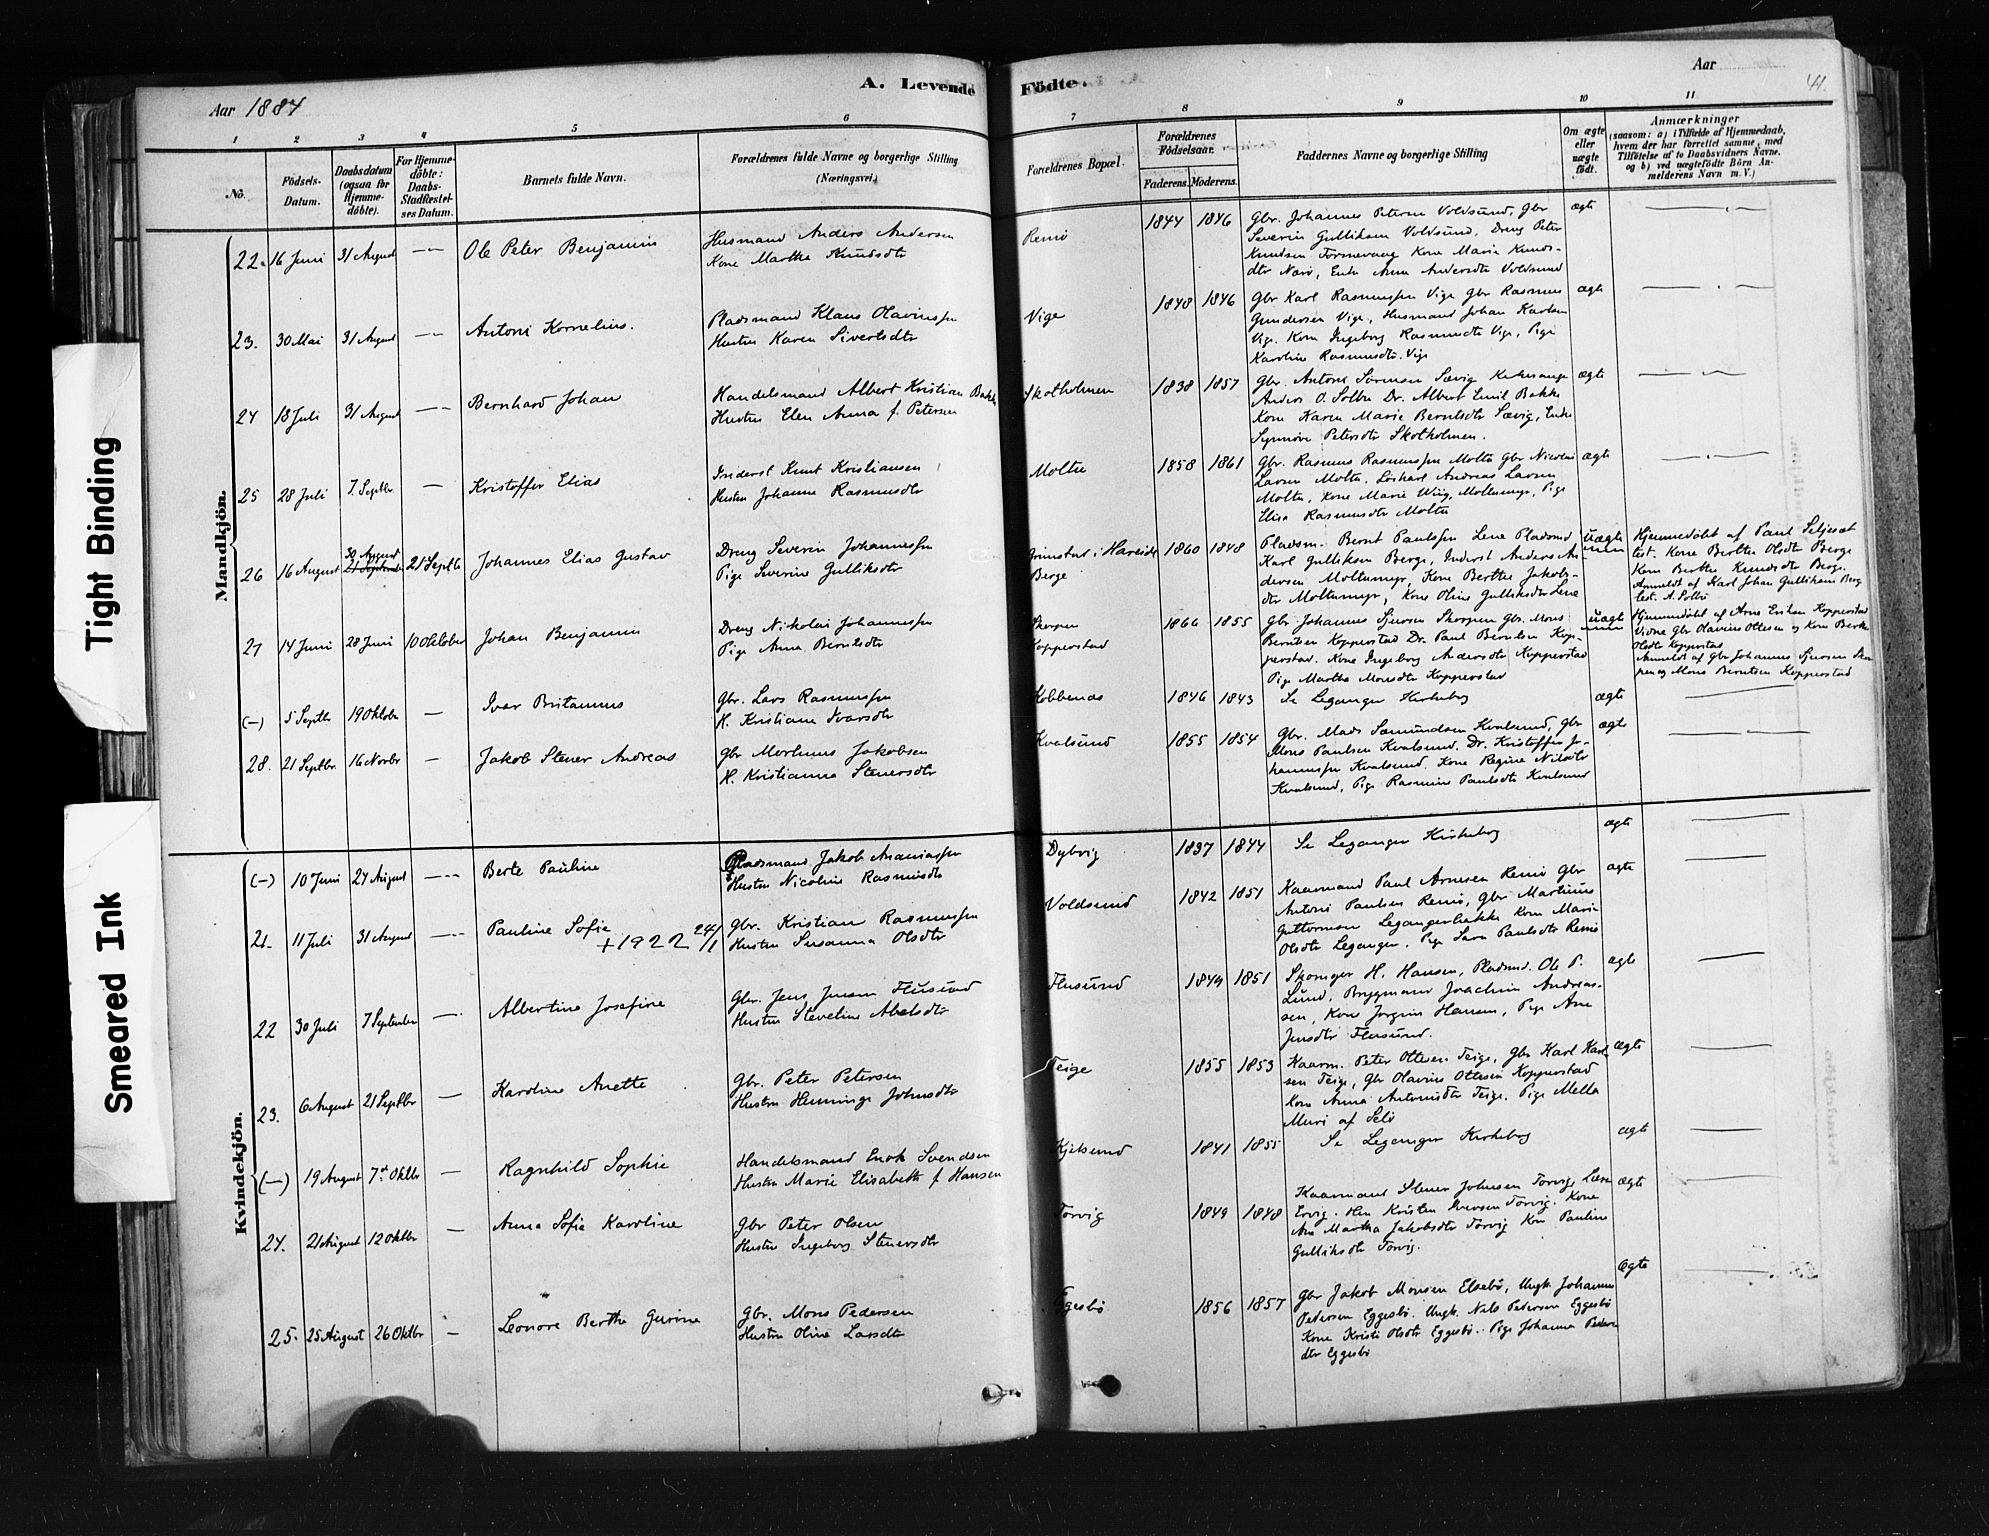 Tight Binding
Smeared Ink
A. Levende Födte.
Aar 1884
Aar
41.
1 2 3 4 5 6 7 8 9 10 11
No.
Födsels-Datum.
Daabsdatum (ogsaa for Hjemme-döbte).
For Hjemme-döbte: Daabs-Stadfæstel-ses Datum.
Barnets fulde Navn.
Forældrenes fulde Navne og borgerlige Stilling (Næringsvei.)
Forældrenes Bopæl.
Forældrenes Födselsaar.
Faderens. Moderens.
Faddernes Navne og borgerlige Stilling
Om ægte eller uægte födt.
Anmærkninger
(saasom: a) i Tilfælde af Hjemmedaab, hvem der har forrettet samme, med Tilföielse af to Daabsvidners Navne, og b) ved uægtefödte Börn An-melderens Navn m. V.)
Mandkjön.
22. 16 Juni 31 August Ole Peter Benjamin
Husmand Anders Andersen
Kone Martha Knudsdtr
Remö 1844 1846
Gbr. Johannes Petersen Voldsund, Gbr
Severin Gulliksen Voldsund, Dreng Peter
Knudsen Kone Marie Knuds-
dtr Nærö, Enke Anna Andersdtr Voldsund
ægte
23. 30 Mai 31 August Antoni Kornelius.
Pladsmand Klaus Olavinssen
Hustru Karen Sivertsdtr
Vige 1848 1846
Gbr Karl Rasmussen Vige Gbr Rasmus
Gundersen Vige, Husmand Johan Karlsen
Vige. Kone Ingeborg Rasmusdtr Vige, Pige
Karoline Rasmusdtr. Vige
ægte
24 18 Juli 31 August Bernhard Johan
Handelsmand Albert Kristian Bakke
Hustru Elen Anna f. Petersen
Skotholmen 1838 1857
Gbr. Antoni Sörensen Sævig
Anders O. Solbø Dr. Albert Emil Bakke
Kone Karen Marie Berntsdtr Sævig, Enke
Synnöve Petersdtr Skotholmen.
ægte
25 28 Juli 7. Septbr Kristoffer Elias
Inderst Knut Kristiansen
Hustru Johanne Rasmusdtr
Moltu 1858 1861
Gbr. Rasmus Rasmussen Moltu Gbr Nicolai
Larsen Moltu. Andreas Larsen
Moltu, Kone Marie Wiig, Moltumyr, Pige
Elisa Rasmusdtr Moltu
ægte
26 16 August 30 August 21 Septb Johannes Elias Gustav
Dreng Severin Johannessen
Pige Severine Gulliksdtr
Grimstad i Hareide
Berge
1860 1848
Pladsm. Bernt Paulssen Lene Pladsmd
Karl Gulliksen Berge, Inderst Anders An
dersen Moltumyr, Kone Berthe Jakobs-
dtr Moltumyr, Kone Oline Gulliksdtr Lene
uægte
Hjemmedöbt af Paul Seljeset
test. Kone Berthe Olsdtr Berge
Kone Berthe Knudsdtr Berge.
Anmeldt af Karl Johan Gulliksen Berg
test. A. Solbø
27 14 Juni 28 Juni 10 Oktober Johan Benjamin
Dreng Nikolai Johannessen
Pige Anna Berntsdtr
Skorpen
Kopperstad
1866 1855
Gbr Johannes Sjursen Skorpen Gbr. Mons
Berntsen Kopperstad Dr. Paul Berntsen Kop-
perstad. Kone Ingeborg Andersdtr Kopperstad
Pige Martha Monsdtr Kopperstad
uægte
Hjemmedöbt af Arne Eriksen Kopperstad
Vidne Gbr Olavius Ottesen og Kone Berthe
Olsdtr Kopperstad
Anmeldt af Gbr Johannes Sjursen Skor
pen og Mons Berntsen Kopperstad
(-) 5 Septbr 19 Oktober Ivar Britanus
Gbr. Lars Rasmussen
H. Kristiane Ivarsdtr
Kobbenæs 1846 1843
Se Leganger Kirkebog
ægte
28. 21 Septbr. 16 Novbr Jakob Stener Andreas
Gbr Mortinus Jakobsen
H. Kristianna Stenersdtr
Kvalsund 1855 1854
Gbr. Mads Samundsen Kvalsund, Gbr
Mons Paulsen Kvalsund. Dr. Kristoffer Jo-
hannessen Kvalsund. Kone Regine Nilsdtr
Kvalsund, Pige Rasmine Paulsdtr Kvalsund
ægte
Kvindekjön.
(-) 10 Juni 27 August Berte Pauline
Pladsmand Jakob Ananiassen
Hustru Nicoline Rasmusdtr
Dybvig 1837 1844
Se Leganger Kirkebog
ægte
21. 11 Juli 31 August Pauline Sofie
+ 1922 24/1
Gbr. Kristian Rasmussen
Hustru Susanna Olsdtr
Voldsund 1842 1851
Kaarmand Paul Arnesen Remö Gbr
Antoni Paulsen Remö, Gbr Martinus
Guttormsen Legangerbakke Kone Marie
Olsdtr Leganger. Pige Sara Paulsdtr Remö
ægte
22 30 Juli 7 September Albertine Josefine
Gbr. Jens Jensen Flusund
Hustru Steveline Abelsdtr
Flusund 1849 1851
Skomager H. Hansen, Pladsmd. Ole P.
Lund, Brygmand Joachim Andreas-
sen, Kone Jörgine Hansen, Pige Ane
Jensdtr Flusund.
ægte
23. 6 August 21 Septbr Karoline Anette
Gbr. Peter Petersen
Hustru Henninge Johnsdtr
Teige 1855 1853
Kaarm. Peter Ottesen Teige, Gbr Karl Karl
sen Teige, Gbr Olavius Ottesen Kopperstad
Kone Anna Antonisdtr Teige. Pige Mella
Muri af Selö
ægte
(-) 19 August 7de Oktbr Ragnhild Sophie
Handelsmand Enok Svendsen
Hustru Marie Elisabeth f Hansen
Kjelsund 1841 1855
Se Leganger Kirkebog
ægte
24. 21 August 12 Oktbr Anna Sofie Karoline
Gbr Peter Olsen
Hustru Ingeborg Stenersdtr
Torvig 1849 1848
Kaarmand Stener Johnsen Torvig, Lærer
Ervig. Kristen Iversen Torvig. Kone
Ane Martha Jakobsdtr Torvig Kone Pauline
Gulliksdtr Torvig.
ægte
25. 25 August 26 Oktbr Leonore Berthe Gurine
Gbr. Mons Pedersen
Hustru Oline Larsdtr
Eggesbö 1856 1857
Gbr Jakob Monsen Elsebö, Ungk. Johannes
Petersen Eggesbö. Ungk. Nils Petersen Eggesbö
Kone Kristi Olsdtr Eggesbö. Pige Johanna Peders
dtr Eggesbö
ægte